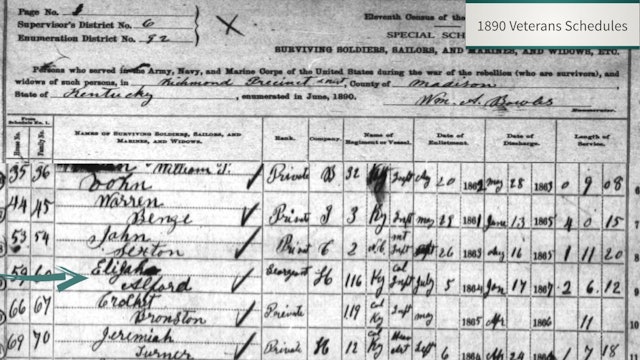 1890 Veterans Schedules
Page No. 1
Supervisor's District No. 6
Enumeration District No. 92
Eleventh Census of the
SPECIAL SCH
SURVIVING SOLDIERS, SAILORS, AND MARINES, AND WIDOWS, ETC.
Persons who served in the Army, Navy, and Marine Corps of the United States during the war of the rebellion (who are survivors), and
widows of such persons, in Richmond Precinct, County of Madison,
State of Kentucky, enumerated in June, 1890.
Wm. A. Bowles
Enumerator.
From Schedule No. 1.
House No.
Family No.
NAMES OF SURVIVING SOLDIERS, SAILORS, AND MARINES, AND WIDOWS.
Rank.
Company.
Name of Regiment or Vessel.
Date of Enlistment.
Date of Discharge.
Length of Service.
35 36 William J. Private 32 Inft 20 1862 may 28 1863 0 9 08
John
44 45 Warren Benge Privat 3 Ky Inft 1861 June 13 1865 4 0 15 7
53 54 John Sexton Privat C 2 Inft 26 1863 16 1865 1 11 20 8
59 Elijah Alford Sergeant H 116 Ky Col Inft July 5 1864 Jan 17 1867 2 6 12 9
66 67 Crocket Bronston Private 119 Ky Col Inft may 1865 Apr 1866 11
69 70 Jeremiah Turner Private H 12 Ky 6 1864 24 1 7 18